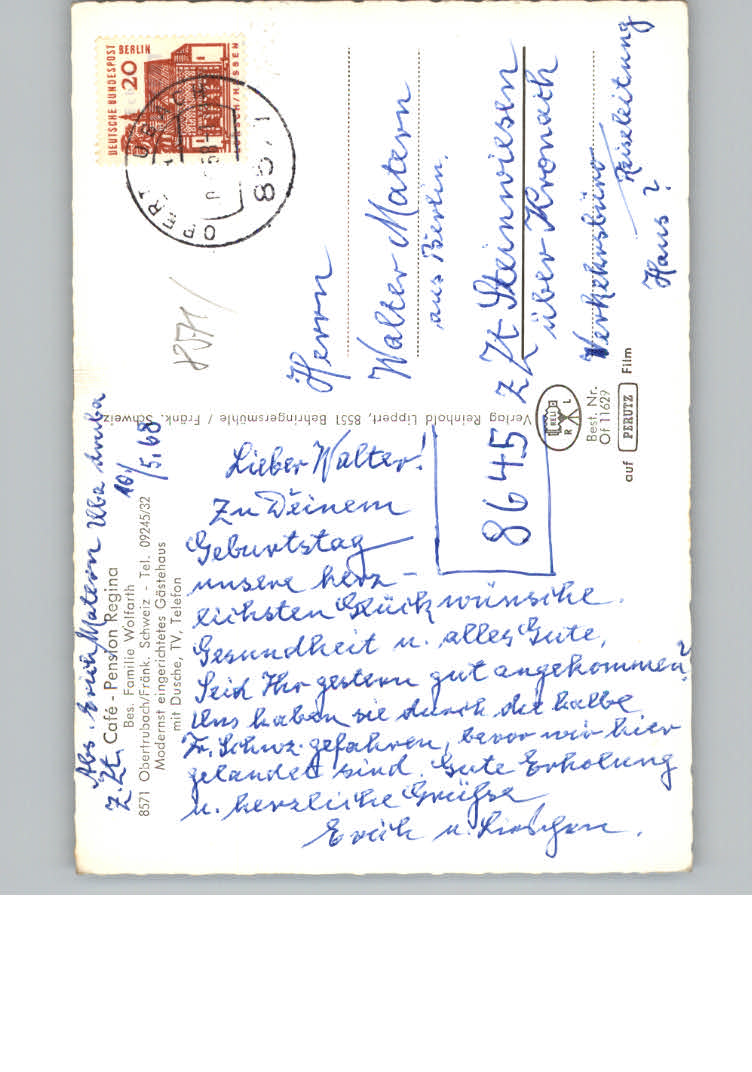 Abs. Erich Matern
z. Zt.
10/5.68
Café - Pension Regina
Bes. Familie Wolfarth
8571 Obertrubach/Fränk. Schweiz - Tel. 09245/32
Modernst eingerichtetes Gästehaus
mit Dusche, TV, Telefon
Lieber Walter!
Zu Deinem
Geburtstag
unsere herz-
lichsten Glückwünsche.
Gesundheit u. alles Gute,
Seid Ihr gestern gut angekommen?
Uns haben sie durch die halbe
Fr. Schwz. gefahren, bevor wir hier
gelandet sind. Gute Erholung
u. herzliche Grüße
Erich u. Lieschen.
Verlag Reinhold Lippert, 8551 Behringersmühle / Fränk. Schweiz
DEUTSCHE BUNDESPOST BERLIN
20
LORSCH/HESSEN
8571
8571/
Herrn
Walter Matern
aus Berlin.
8645 z Zt Steinwiesen
über Kronach
Verkehrsbüro
Reiseleitung
Haus?
RELI
R L
Best. Nr.
Of 11629
auf PERUTZ Film